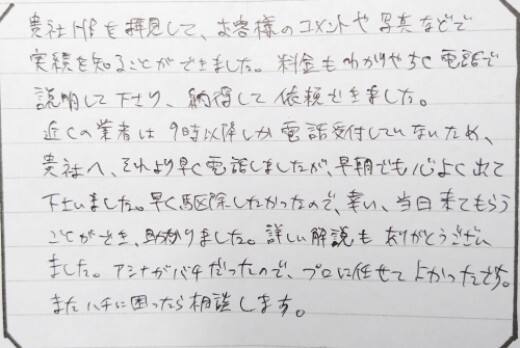 貴社HPを拝見して、お客様のコメントや写真などで
実績を知ることができました。料金もわかりやすく電話で
説明して下さり、納得して依頼できました。
近くの業者は9時以降しか電話受付していないため、
貴社へ、それより早く電話しましたが、早朝でも心よく出て
下さいました。早く駆除したかったので、幸い、当日来てもらう
ことができ、助かりました。詳しい解説もありがとうござい
ました。アシナガバチだったので、プロに任せてよかったです。
またハチに困ったら相談します。